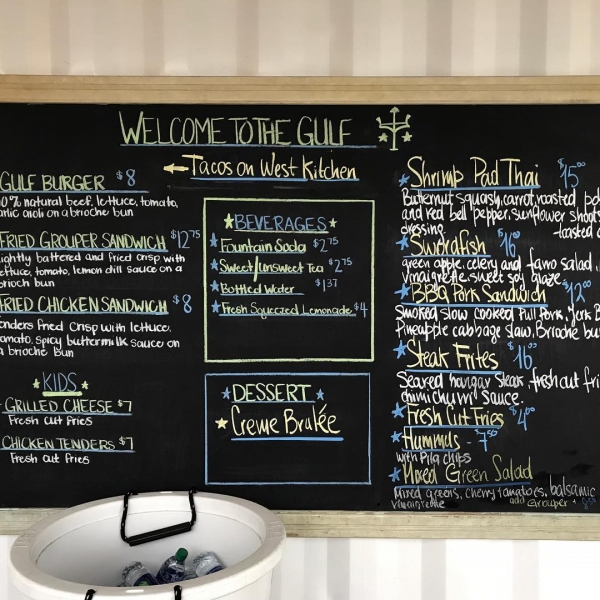 WELCOME TO THE GULF
← Tacos on West Kitchen
GULF BURGER $8
natural beef, lettuce, tomato,
aioli on a brioche bun
FRIED GROUPER SANDWICH $12.75
lightly battered and fried crisp with
lettuce, tomato, lemon dill sauce on a
brioch bun
FRIED CHICKEN SANDWICH $8
tenders fried crisp with lettuce,
tomato, spicy buttermilk sauce on
a brioche bun
KIDS
GRILLED CHEESE $7
Fresh cut fries
CHICKEN TENDERS $7
Fresh cut fries
BEVERAGES
Fountain Soda $2.75
Sweet/Unsweet Tea $2.75
Bottled Water $1.37
Fresh Squeezed Lemonade $4
DESSERT
Creme Brulée
Shrimp Pad Thai $15.00
Butternut squash, carrot, roasted
and red bell pepper, sunflower shoots
dressing.
Swordfish $16
green apple, celery and salad,
vinaigrette, sweet soy glaze
BBQ Pork Sandwich $12.00
Smoked slow cooked pull pork, Jerk
Pineapple cabbage slaw, Brioche bun
Steak Frites $16
Seared hangar steak, fresh cut
chimichurri sauce.
Fresh Cut Fries $4.00
Hummus - 7.50
with pita chips
Mixed Green Salad
Mixed greens, cherry tomatoes, balsamic
vinaigrette add Grouper